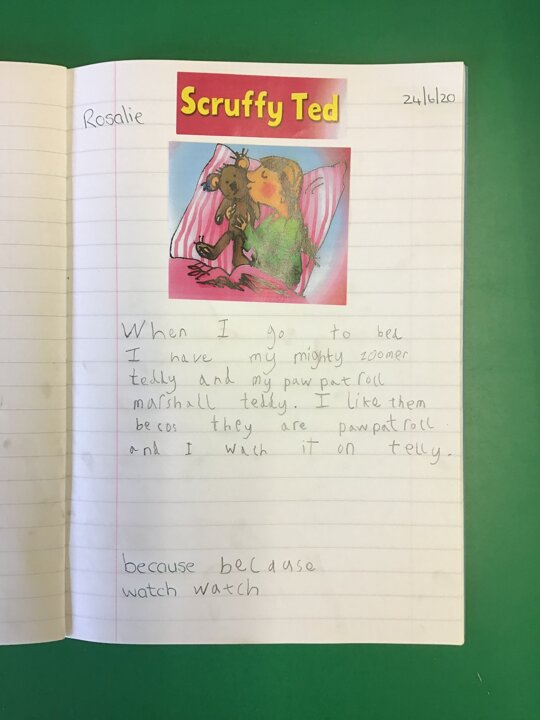 Scruffy Ted
24/6/20
Rosalie
When I go to bed
I have my mighty zoomer
teddy and my pawpatroll
marshall teddy. I like them
becos they are pawpatroll
and I wach it on telly.
because because
watch watch